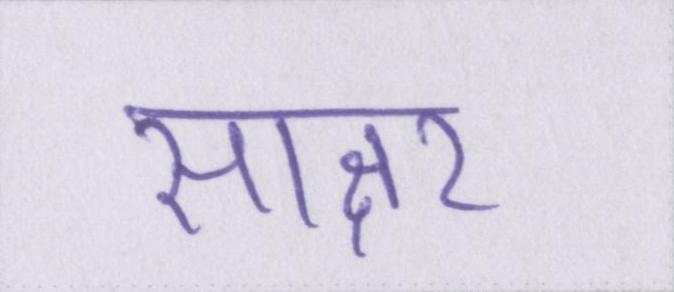 साक्षर